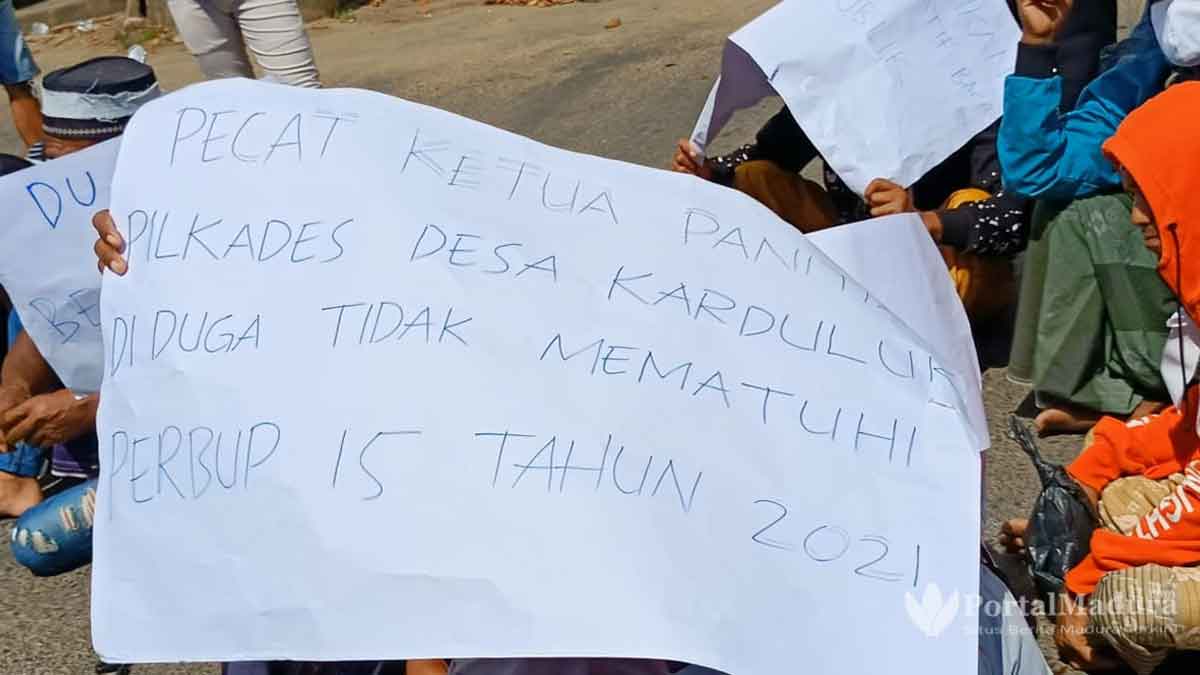 PECAT KETUA
PILKADES DESA KARDULUK
DIDUGA TIDAK MEMATUHI
PERBUP 15 TAHUN 2021
DU
BE
PortalMadura
Situs Berita Madura